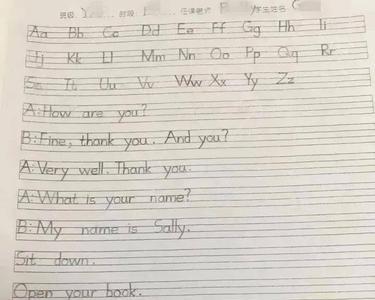 班级 时段 任课老师 学生姓名
Aa Bb Cc Dd Ee Ff Gg Hh Ii
Jj Kk Ll Mm Nn Oo Pp Qq Rr
Ss Tt Uu Vv Ww Xx Yy Zz
A: How are you?
B: Fine, thank you. And you?
A: Very well. Thank you.
A: What is your name?
B: My name is Sally.
Sit down.
Open your book.